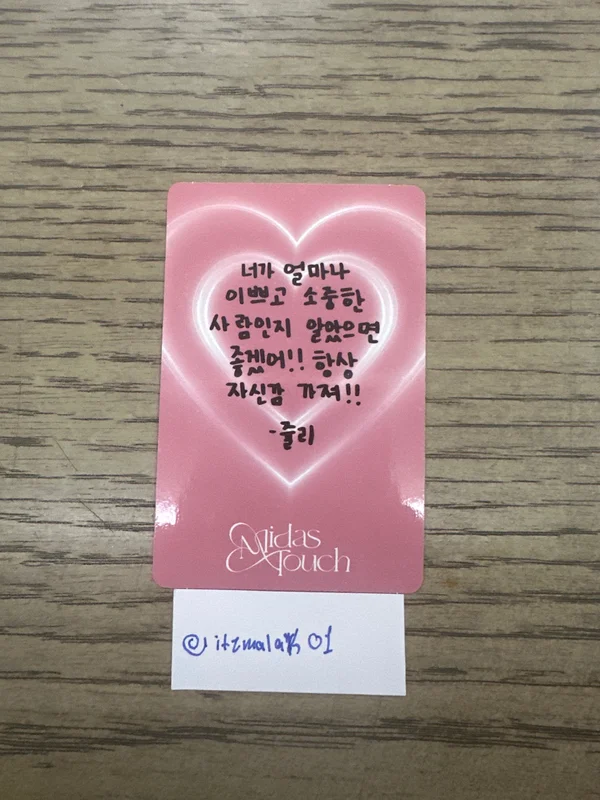 너가 얼마나
이쁘고 소중한
사람인지 알았으면
좋겠어!! 항상
자신감 가져!!
-쥴리
Midas
Touch
@itzmalak01